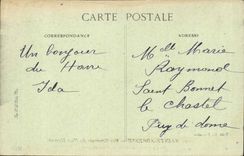 CARTE POSTALE
CORRESPONDANCE
ADRESSE
Un bonjour
du Havre
Ida
Melle Marie
Raymond
Saint Bonnet
le Chastel
Puy de dome